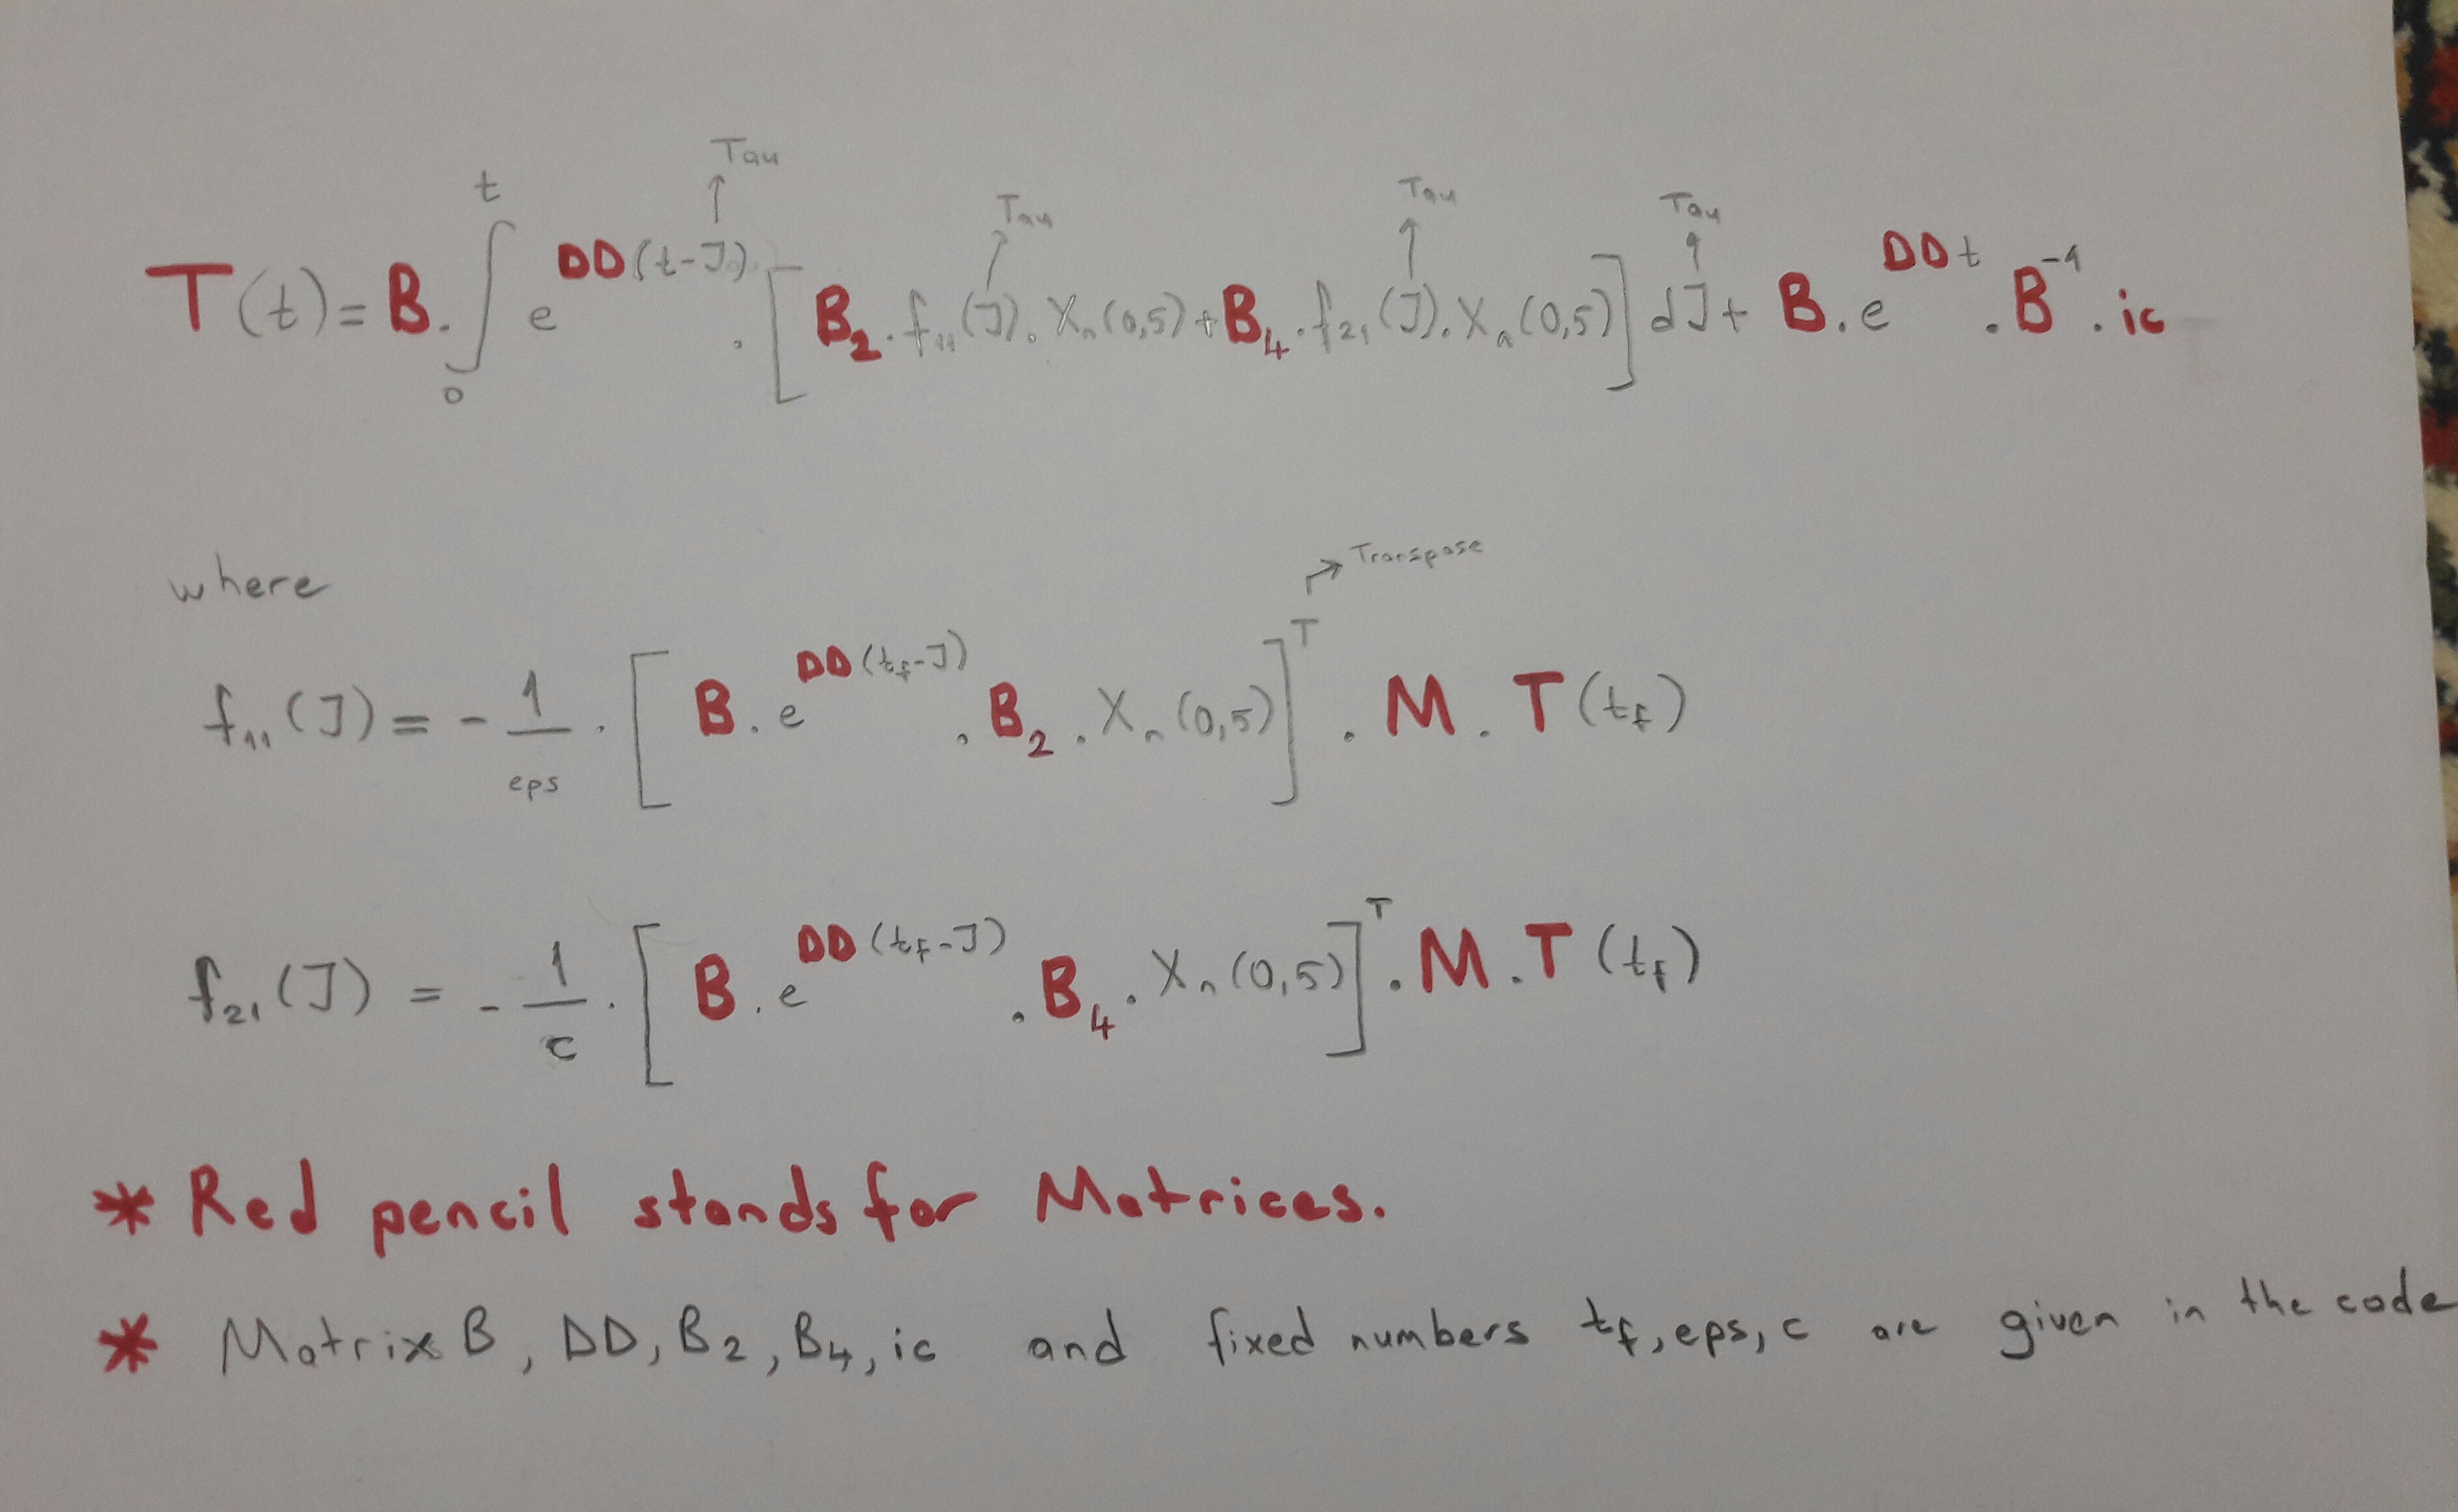 Tau Tau Tau Tau
T(t) = B . ∫₀ᵗ e^DD(t-J) . [ B₂ . f₁₁(J) . Xₙ(0,5) + B₄ . f₂₁(J) . Xₙ(0,5) ] dJ + B . e^DDt . B⁻¹ . ic
where
Transpose
f₁₁(J) = - 1/eps . [ B . e^DD(t_f-J) . B₂ . Xₙ(0,5) ]ᵀ . M . T(t_f)
f₂₁(J) = - 1/c . [ B . e^DD(t_f-J) . B₄ . Xₙ(0,5) ]ᵀ . M . T(t_f)
* Red pencil stands for Matrices.
* Matrix B, DD, B₂, B₄, ic and fixed numbers t_f, eps, c are given in the code